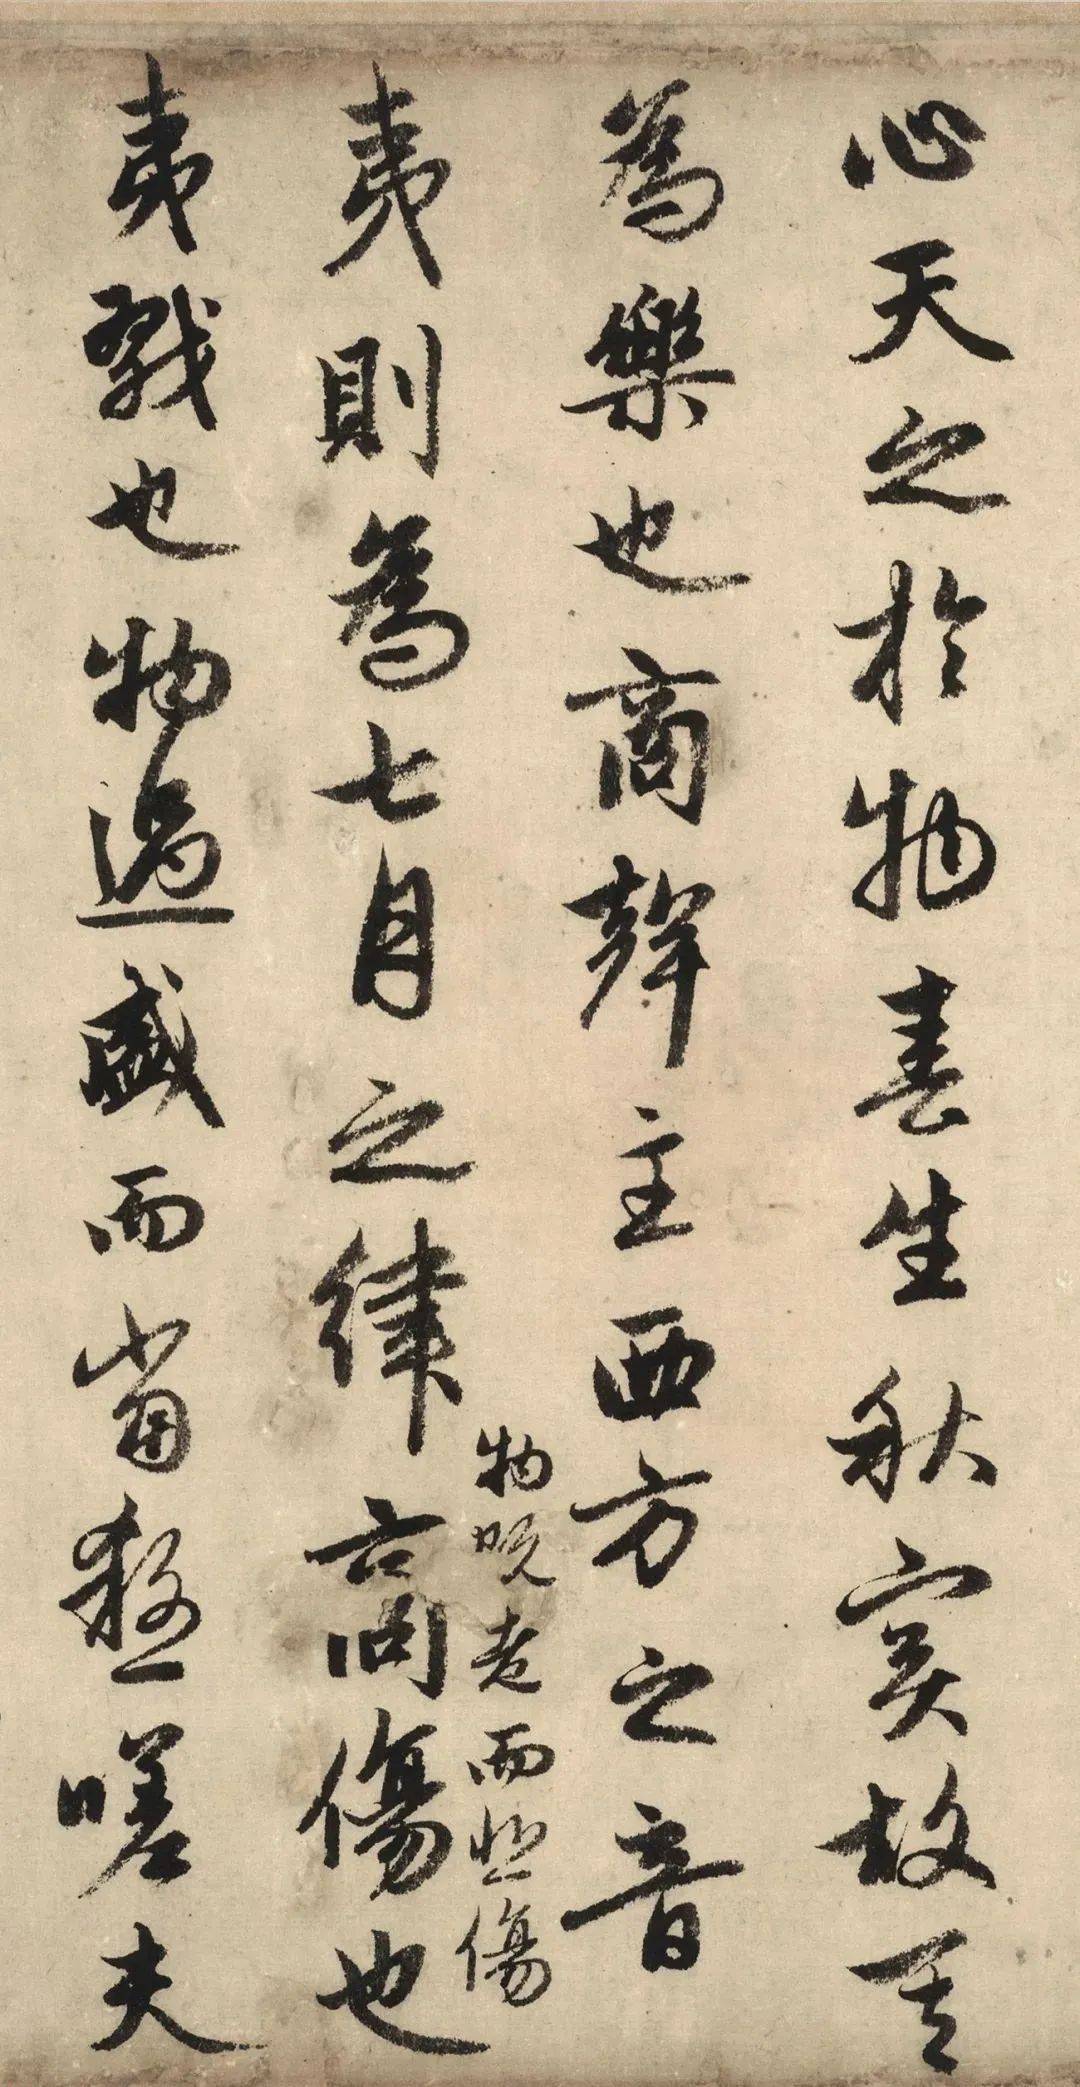 心天之於物春生秋實故其
為樂也商聲主西方之音
夷則為七月之律商傷也
物既老而悲傷
夷戮也物過盛而當殺嗟夫